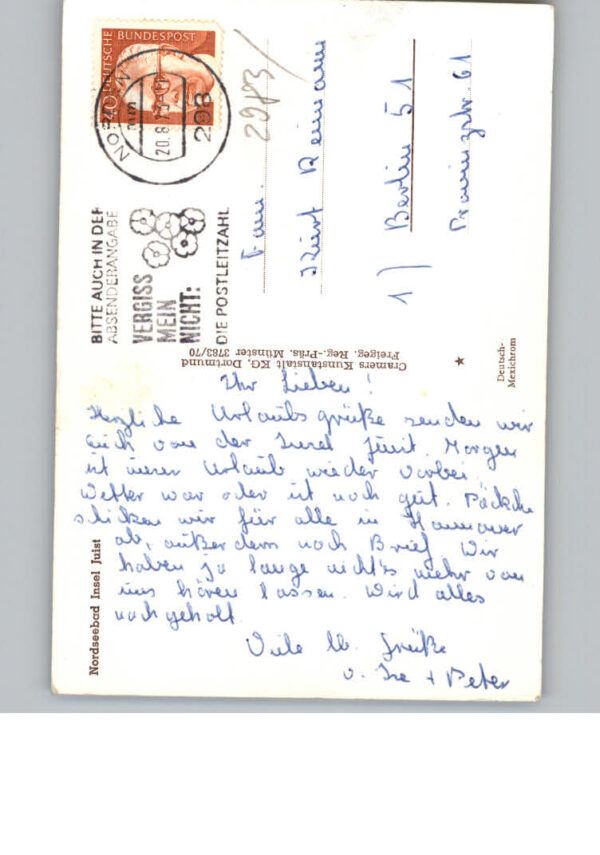 DEUTSCHE BUNDESPOST
NORD
20.8.73
298
BITTE AUCH IN DER
ABSENDERANGABE
VERGISS
MEIN
NICHT:
DIE POSTLEITZAHL
2983/
Fam.
Kurt Reimann
1) Berlin 51
Provinzstr. 61
Cramers Kunstanstalt KG, Dortmund
Freigeg. Reg.-Präs. Münster 3783/70
Deutsch-
Mexichrom
Nordseebad Insel Juist
Ihr Lieben!
Herzliche Urlaubsgrüße senden wir
Euch von der Insel Juist. Morgen
ist unser Urlaub wieder vorbei.
Wetter war oder ist noch gut. Päckchen
schicken wir für alle in Hannover
ab, außerdem noch Brief. Wir
haben ja lange nichts mehr von
uns hören lassen. Wird alles
nachgeholt.
Viele lb. Grüße
v. + Peter